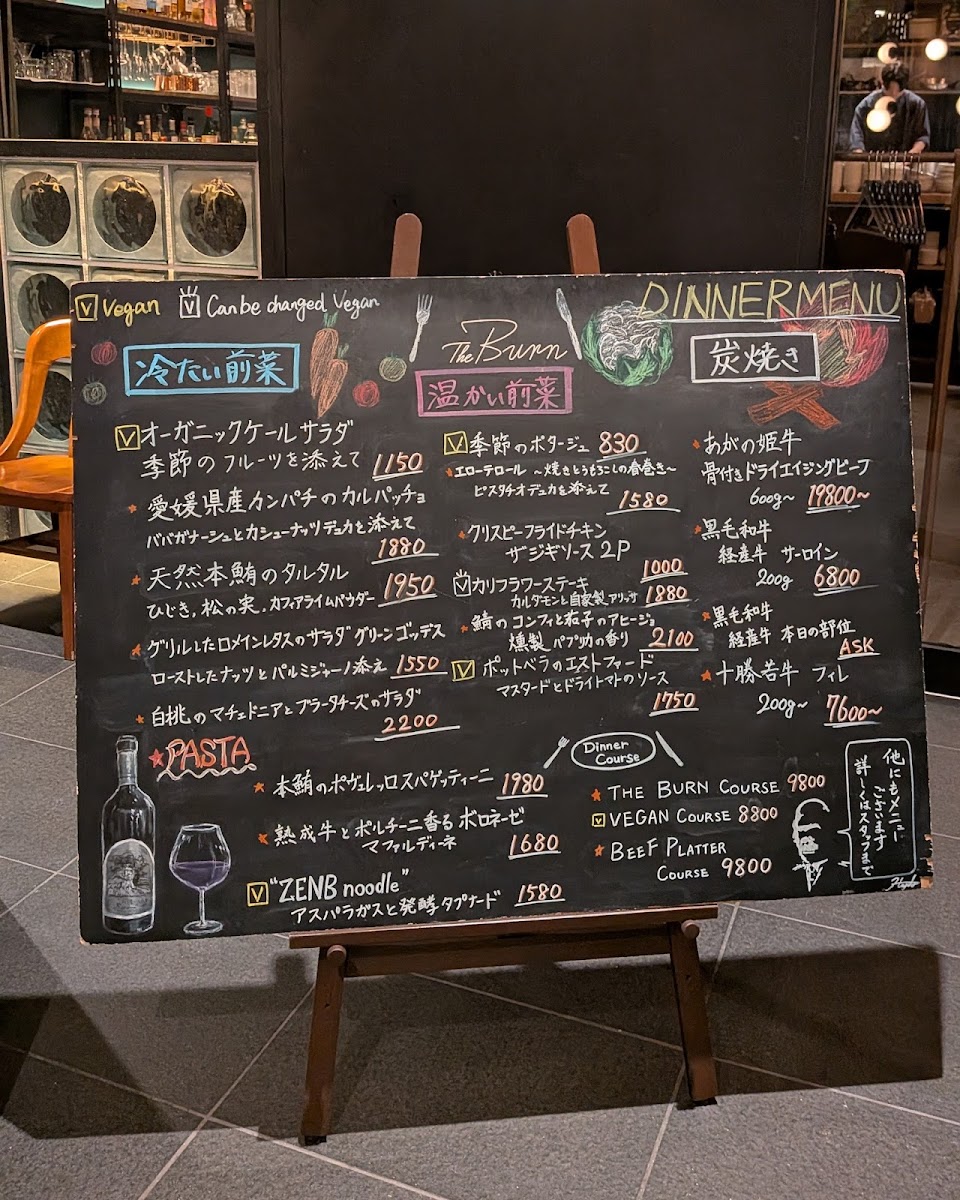 Vegan
Can be changed Vegan
DINNER MENU
The Burn
冷たい前菜
オーガニックケールサラダ
季節のフルーツを添えて 1150
愛媛県産カンパチのカルパッチョ
ババガナーシュとカシューナッツデュカを添えて
1880
天然本鮪のタルタル 1950
ひじき、松の実、カフィアライムパウダー
グリルしたロメインレタスのサラダ グリーンゴッデス
ローストしたナッツとパルミジャーノ添え 1550
白桃のマチェドニアとブラータチーズのサラダ
2200
温かい前菜
季節のポタージュ 830
エローテロール 〜焼きとうもろこしの春巻き〜
ピスタチオデュカを添えて
1580
クリスピーフライドチキン
ザジキソース 2P
1000
カリフラワーステーキ
カルダモンと自家製アリッサ 1880
鯖のコンフィと茄子のアヒージョ
燻製パプリカの香り 2100
ポットベラのエストファード
マスタードとドライトマトのソース
1750
炭焼き
あがの姫牛
骨付きドライエイジングビーフ
600g~ 19800~
黒毛和牛
経産牛 サーロイン
200g 6800
黒毛和牛
経産牛 本日の部位
ASK
十勝若牛 フィレ
200g~ 7600~
PASTA
本鮪のポヴェレッロスパゲッティーニ 1980
熟成牛とポルチーニ香るボロネーゼ
マファルディーネ 1680
"ZENB noodle"
アスパラガスと発酵タプナード 1580
Dinner
Course
THE BURN COURSE 9800
VEGAN COURSE 8800
BEEF PLATTER
COURSE 9800
他にもメニュー
ございます
詳しくはスタッフまで